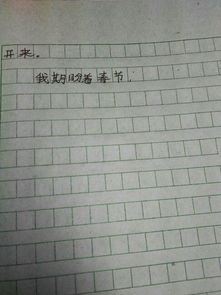 开来。
我期盼着春节.